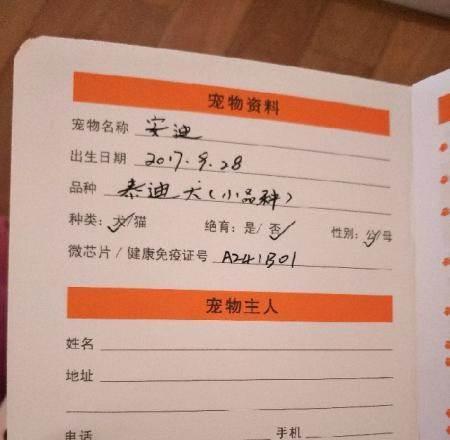 宠物资料
宠物名称 安迪
出生日期 2017.9.28
品种 泰迪犬(小品种)
种类:犬/猫 绝育:是/否 性别:公/母
微芯片/健康免疫证号 A241B01
宠物主人
姓名
地址
电话 手机